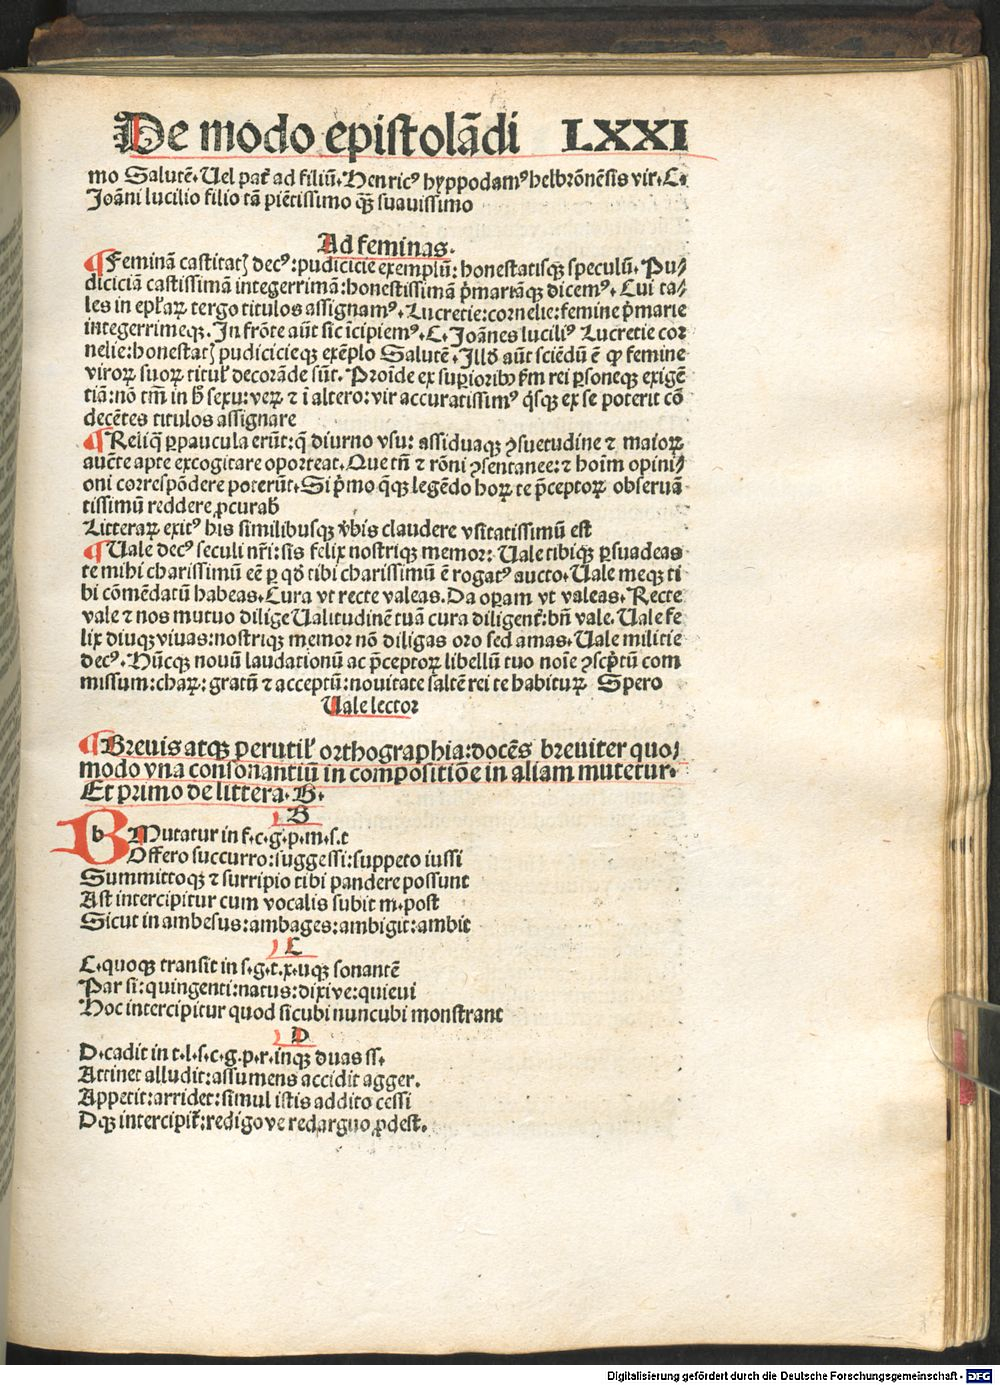 De modo epistolãdi LXXI
mo Salutẽ. Uel patr̃ ad filiũ. Henricꝰ hyppodamꝰ helbrõnẽsis vir. C.
Joãni lucilio filio tã piẽtissimo qȝ̃ suauissimo
Ad feminas.
¶ Feminã castitatꝭ decꝰ: pudicicie exemplũ: honestatisqȝ speculũ. Pu⸗
diciciã castissimã integerrimã: honestissimã p̃mariãqȝ dicemꝰ. Cui ta⸗
les in epl̃aꝝ tergo titulos assignamꝰ. Lucretie: cornelie: femine p̃marie
integerrimeqȝ. In frõte aũt sic ĩcipiemꝰ. C. Joãnes luciliꝰ Lucretie cor
nelie: honestatꝭ pudicicieqȝ exẽplo Salutẽ. Illđ aũt sciẽdũ ẽ ꝙ femine
viroꝝ suoꝝ titul̃ decorãde sũt. Proĩde ex superioribꝰ ẽm rei ꝑsoneqȝ exigẽ
tiã: nõ tm̃ in h̃ sexu: veꝝ ⁊ ĩ altero: vir accuratissimꝰ q̃sqȝ ex se poterit cõ
decẽtes titulos assignare
¶ Reliq̃ ꝑpaucula erũt: q̃ diurno vsu: assiduaqȝ ꝯsuetudine ⁊ maioꝝ
auc̃te apte excogitare oporteat. Que tñ ⁊ rõni ꝯsentanee: ⁊ hoĩm opini⸗
oni correspõdere poterũt. Si p̃mo q̃qȝ legẽdo hoꝝ te p̃ceptoꝝ obseruã
tissimũ reddere ꝓcurab̃
Litteraꝝ exitꝰ his similibusqȝ v̾bis claudere vsitatissimũ est
¶ Uale decꝰ seculi nr̃i: sis felix nostriqȝ memor: Uale tibiqȝ ꝑsuadeas
te mihi charissimũ eẽ ꝑ qđ tibi charissimũ ẽ rogatꝰ aucto. Uale meqȝ ti
bi cõmẽdatũ habeas. Cura vt recte valeas. Da oꝑam vt valeas. Recte
vale ⁊ nos mutuo dilige Ualitudinẽ tuã cura diligent̃: bñ vale. Uale fe
lix diuqȝ viuas: nostriqȝ memor nõ diligas oro sed amas. Uale militie
decꝰ. Hũcqȝ nouũ laudationũ ac p̃ceptoꝝ libellũ tuo noĩe ꝯscp̃tũ com
missum: chaꝝ: gratũ ⁊ acceptũ: nouitate saltẽ rei te habituꝝ Spero
Uale lector
¶ Breuis atqȝ ꝑutil̃ orthographia: docẽs breuiter quo⸗
modo vna consonantiũ in compositiõe in aliam mutetur.
Et primo de littera. B.
B
b Mutatur in f.c.g.p.m.s.t
Offero succurro: suggessi: suppeto iussi
Summittoqȝ ⁊ surripio tibi pandere possunt
Ast intercipitur cum vocalis subit m. post
Sicut in ambesus: ambages: ambigit: ambit
C
C. quoqȝ transit in s.g.t.x. uqȝ sonantẽ
Par si: quingenti: natus: dixi ve: quieui
Hoc intercipitur quod sicubi nuncubi monstrant
D
D. cadit in t.l.s.c.g.p.r. inqȝ duas ss.
Attinet alludit: assumens accidit agger.
Appetit: arridet: simul istis addito cessi
Dqȝ intercipit̃: redigo ve redarguo ꝓdest.
Digitalisierung gefördert durch die Deutsche Forschungsgemeinschaft - DFG